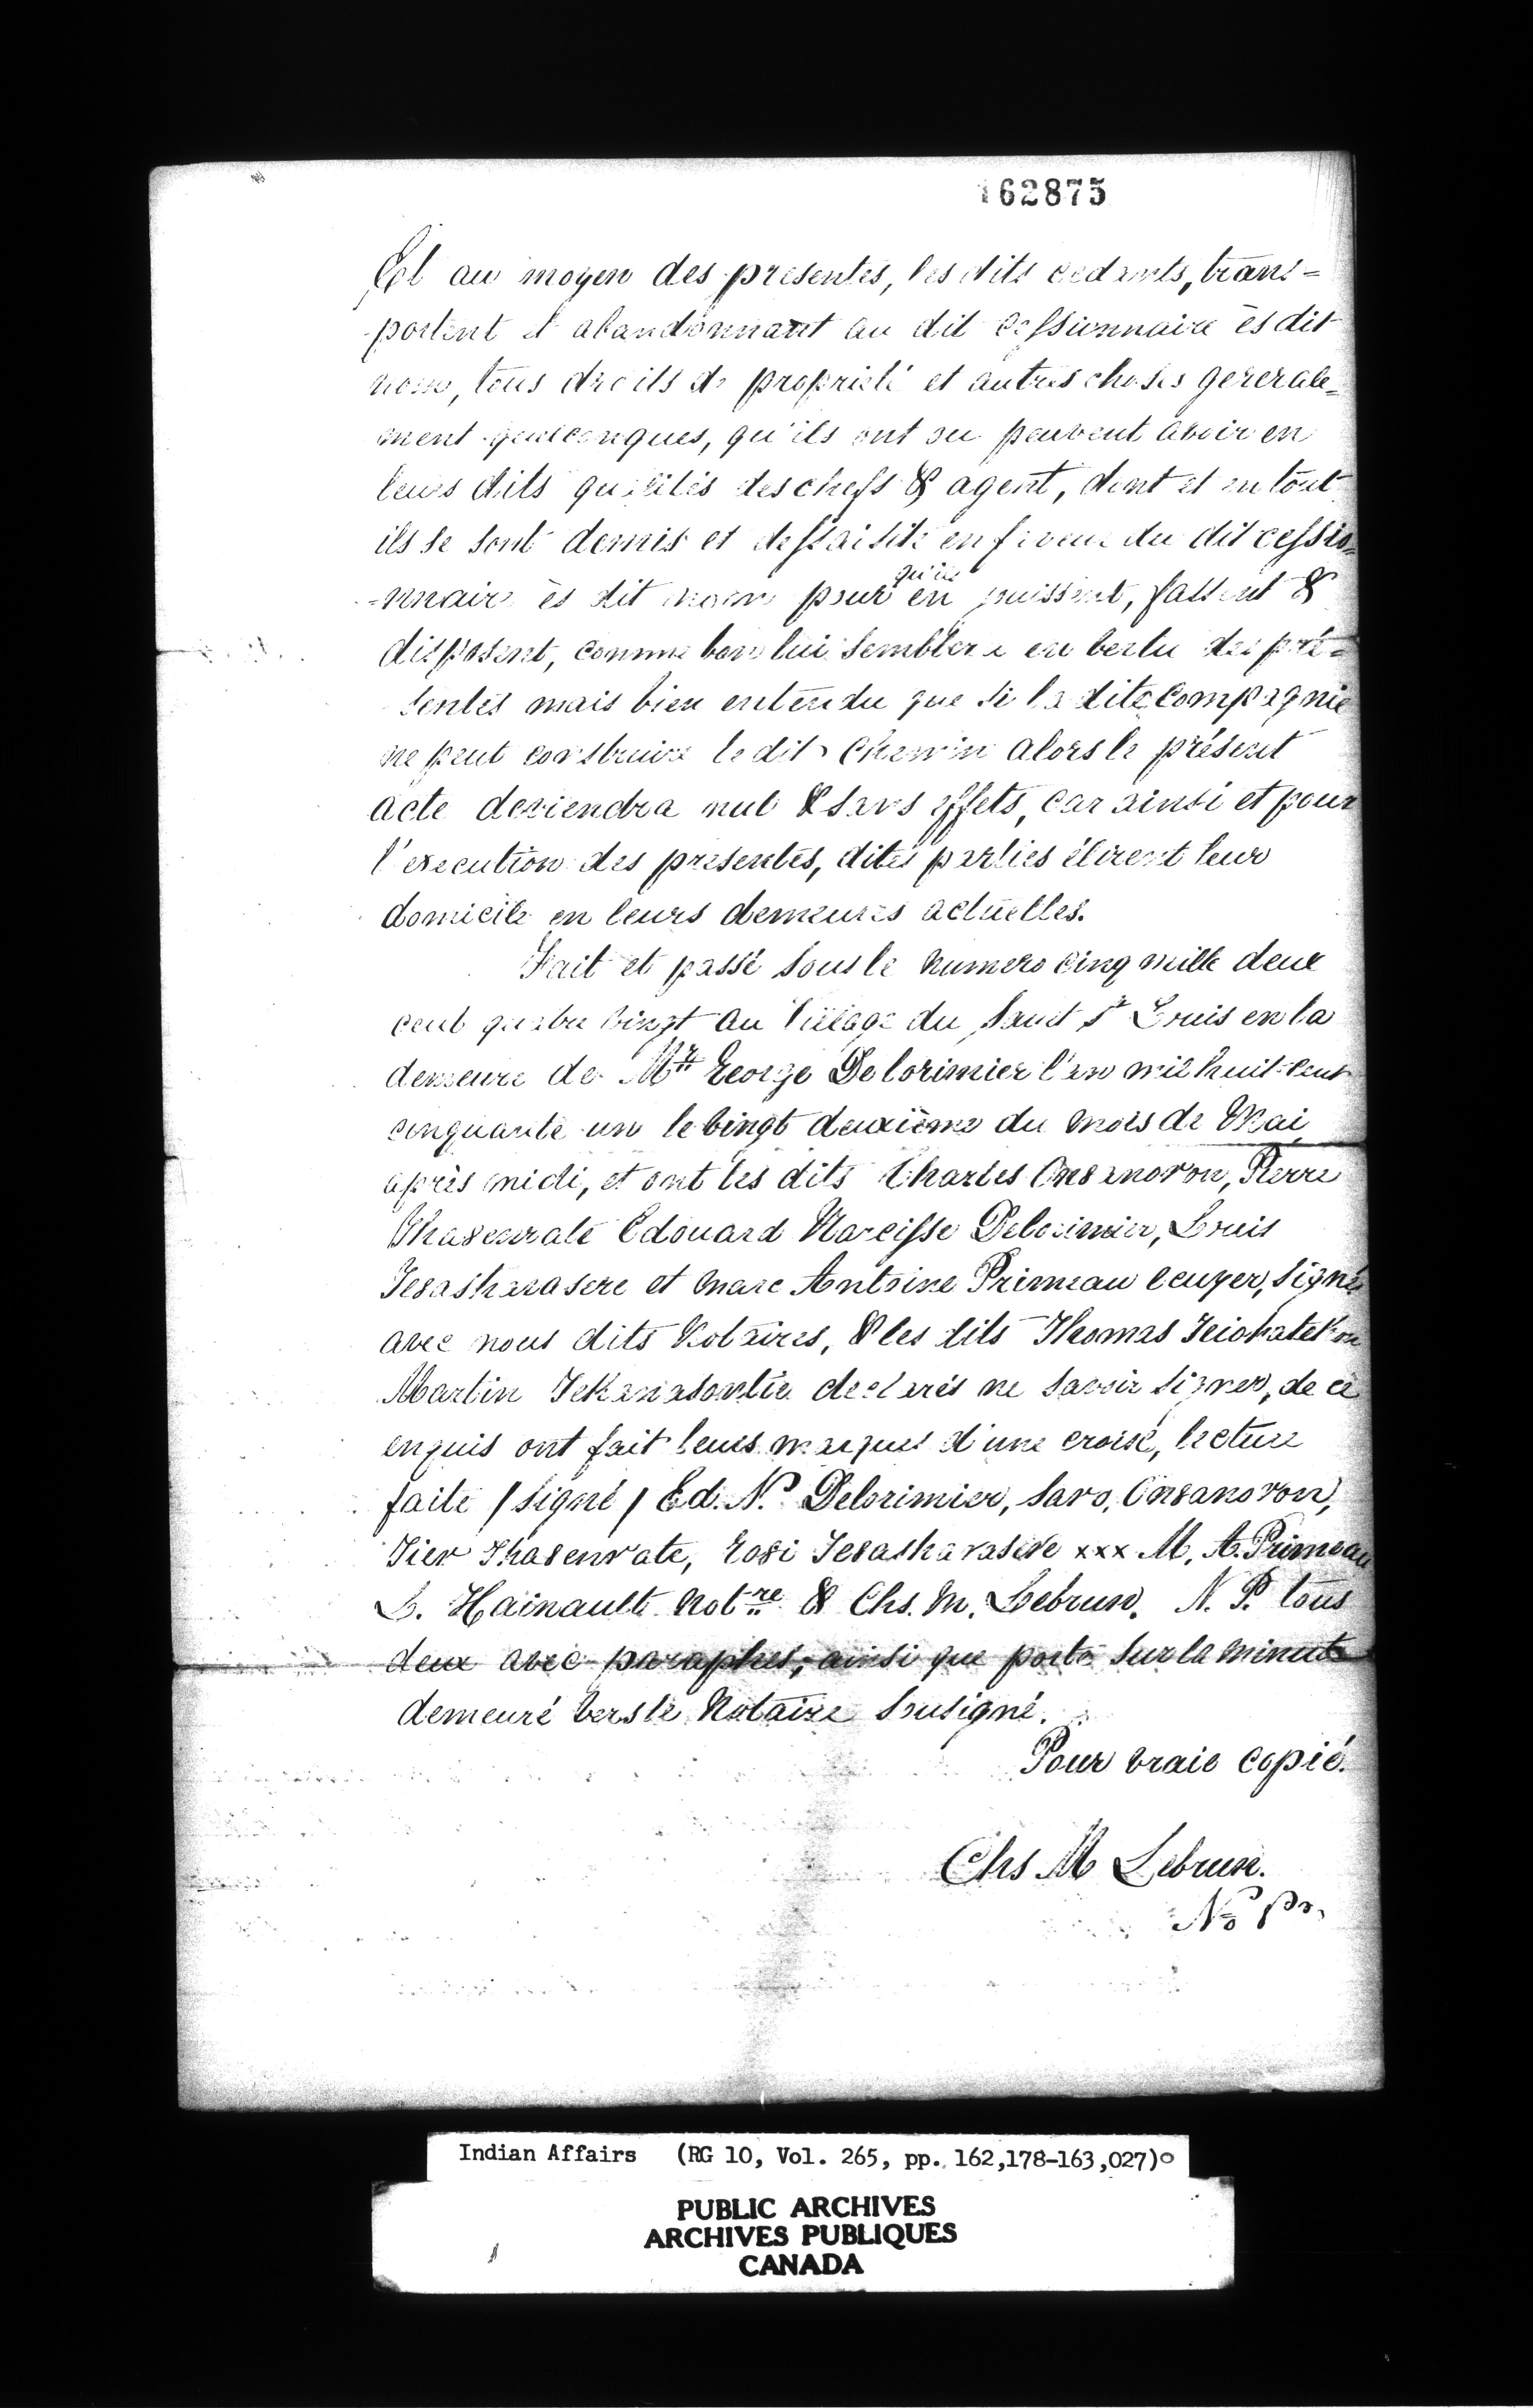 162875
Et au moyen des presentes, les dits cedants, trans=
portent et abandonnant au dit cessionnaire ès dit
nom, tous droits de proprieté et autres choses generale=
ment quelconques, qu'ils ont ou peuvent avoir en
leurs dits qualités des chefs & agent, dont et en tout
ils se sont demis et dessaisite en faveur du dit cessio=
=nnaire ès dit nom pour qu'ils en puissent, fassent &
disposent, comme bon lui semblera en vertu des pré=
sentes mais bien entendu que si la dite compagnie
ne peut construire le dit chemin alors le présent
acte deviendra nul & sans effets, car ainsi et pour
l'execution des presentes, dites parties élirent leur
domicile en leurs demeures actuelles.
Fait et passé sous le numero cinq mille deux
cent quatre vingt au Village du Sault St Louis en la
demeure de Mr George Delorimier l'an mil huit cent
cinquante un le vingt deuxième du mois de Mai
après midi, et ont les dits Charles Onsanoron, Pierre
Thasenrate Edouard Narcisse Delorimier, Louis
Tesasharasere et Marc Antoine Primeau ecuyer, signé
avec nous dits Notaires, & les dits Thomas Teiohatekon
Martin Tekanasontie declarés ne savoir signer, de ce
enquis ont fait leurs marques d'une croisé, lecture
faite / signé / Ed. N. Delorimier, Saro, Onsanoron,
Tier Thasenrate, Rosi Tesasharasere xxx M. A. Primeau
L. Hainault Notre & Chs. M. Lebrun. N. P. tous
deux avec paraphes, ainsi que porté sur la minute
demeuré vers le Notaire Sousigné.
Pour vraie copié.
Chs M Lebrun.
No Po.
Indian Affairs (RG 10, Vol. 265, pp. 162,178-163,027)
PUBLIC ARCHIVES
ARCHIVES PUBLIQUES
CANADA